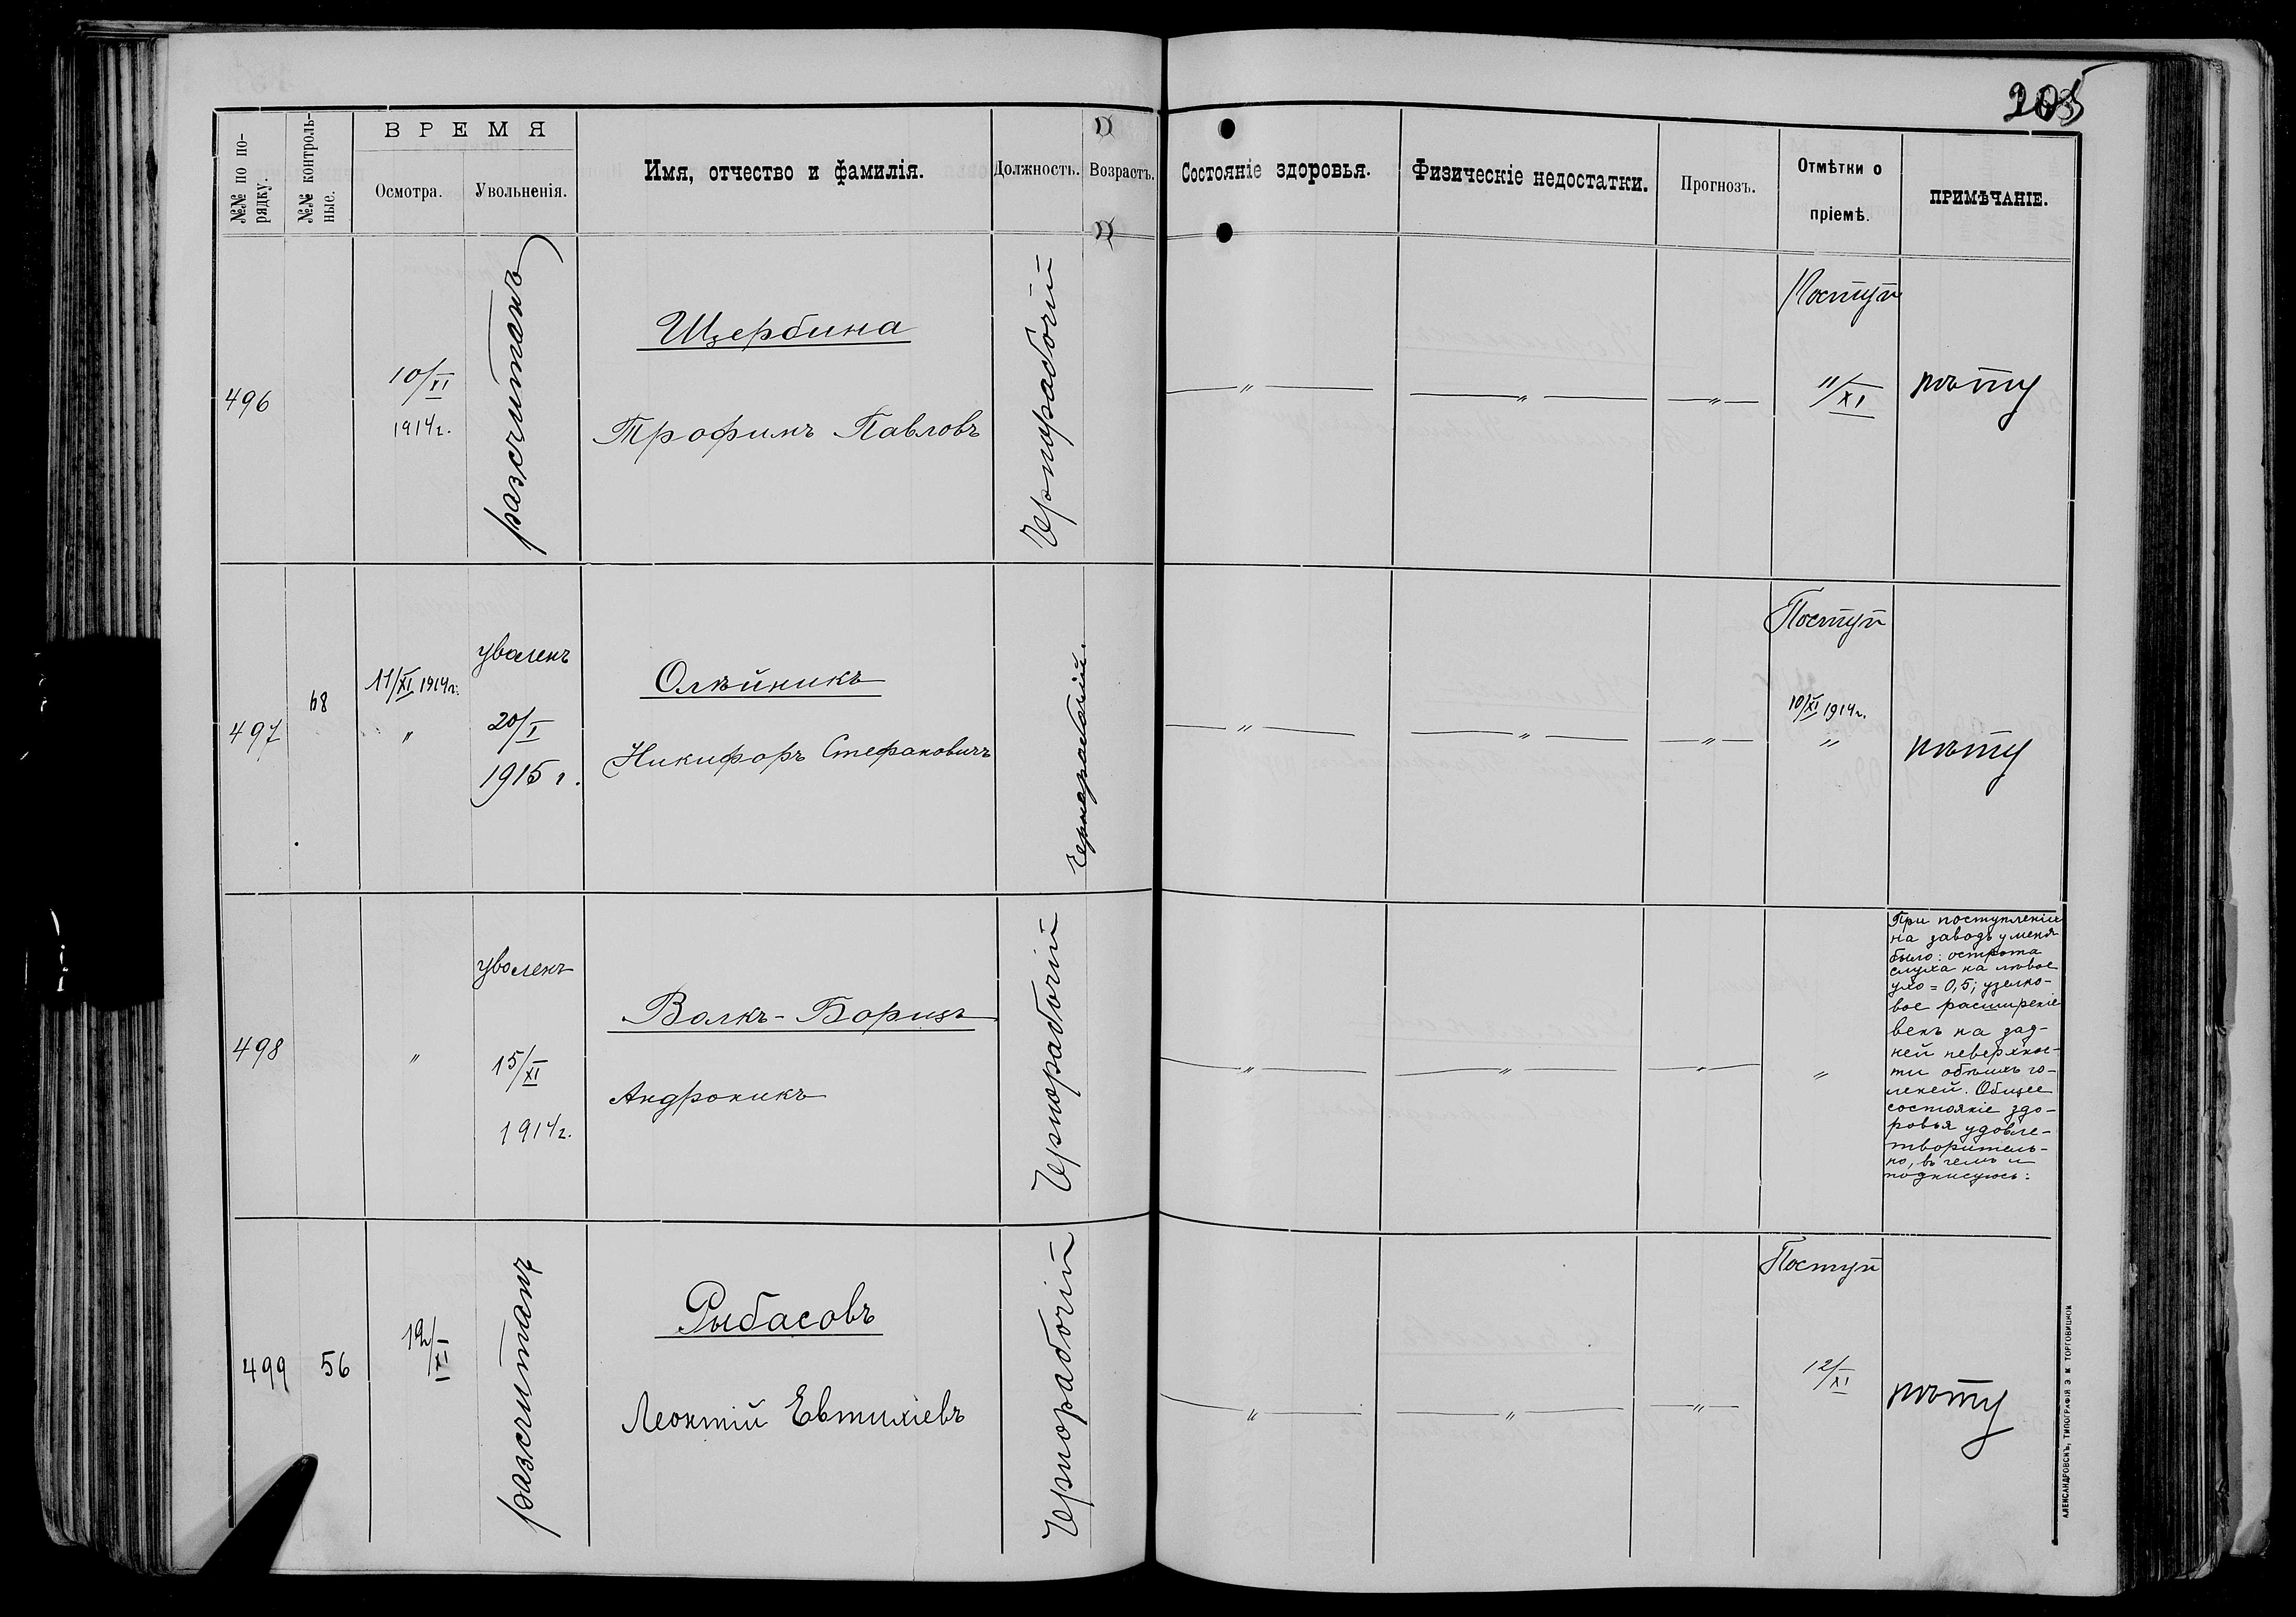 205
№№ по по-
рядку.
№№ контроль-
ные.
ВРЕМЯ
Осмотра.
Увольненія.
Имя, отчество и фамилія.
Должность.
Возрастъ.
Состояніе здоровья.
Физическіе недостатки.
Прогнозъ.
Отмѣтки о
пріемѣ.
ПРИМѢЧАНІЕ.
496
10/XI
1914г.
разсчитанъ
Щербина
Трофимъ Павловъ
Чернорабочій
"
"
"
Поступ
11/XI
497
68
11/XI 1914г.
"
уволенъ
20/I
1915 г.
Олѣйникъ
Никифоръ Стефановичъ
Чернорабочій.
"
"
"
Поступ
10/XI 1914г.
"
498
"
уволенъ
15/XI
1914г.
Волкъ-Борицъ
Андроникъ
Чернорабочій
"
"
"
"
При поступленіи
на заводъ у меня
было: острота
слуха на лѣвое
ухо = 0,5; узелко-
вое расширеніе
венъ на зад-
ней поверхнос-
ти обѣихъ го-
леней. Общее
состояніе здо-
ровья удовле-
творитель-
но, въ чемъ и
подписуюсь:
499
56
12/XI
разсчитанъ
Рыбасовъ
Леонтій Евтихіевъ
Чернорабочій
"
"
"
Поступ
12/XI
АЛЕКСАНДРОВСКЪ, ТИПОГРАФІЯ Э. М. ТОРГОВИЦКОЙ